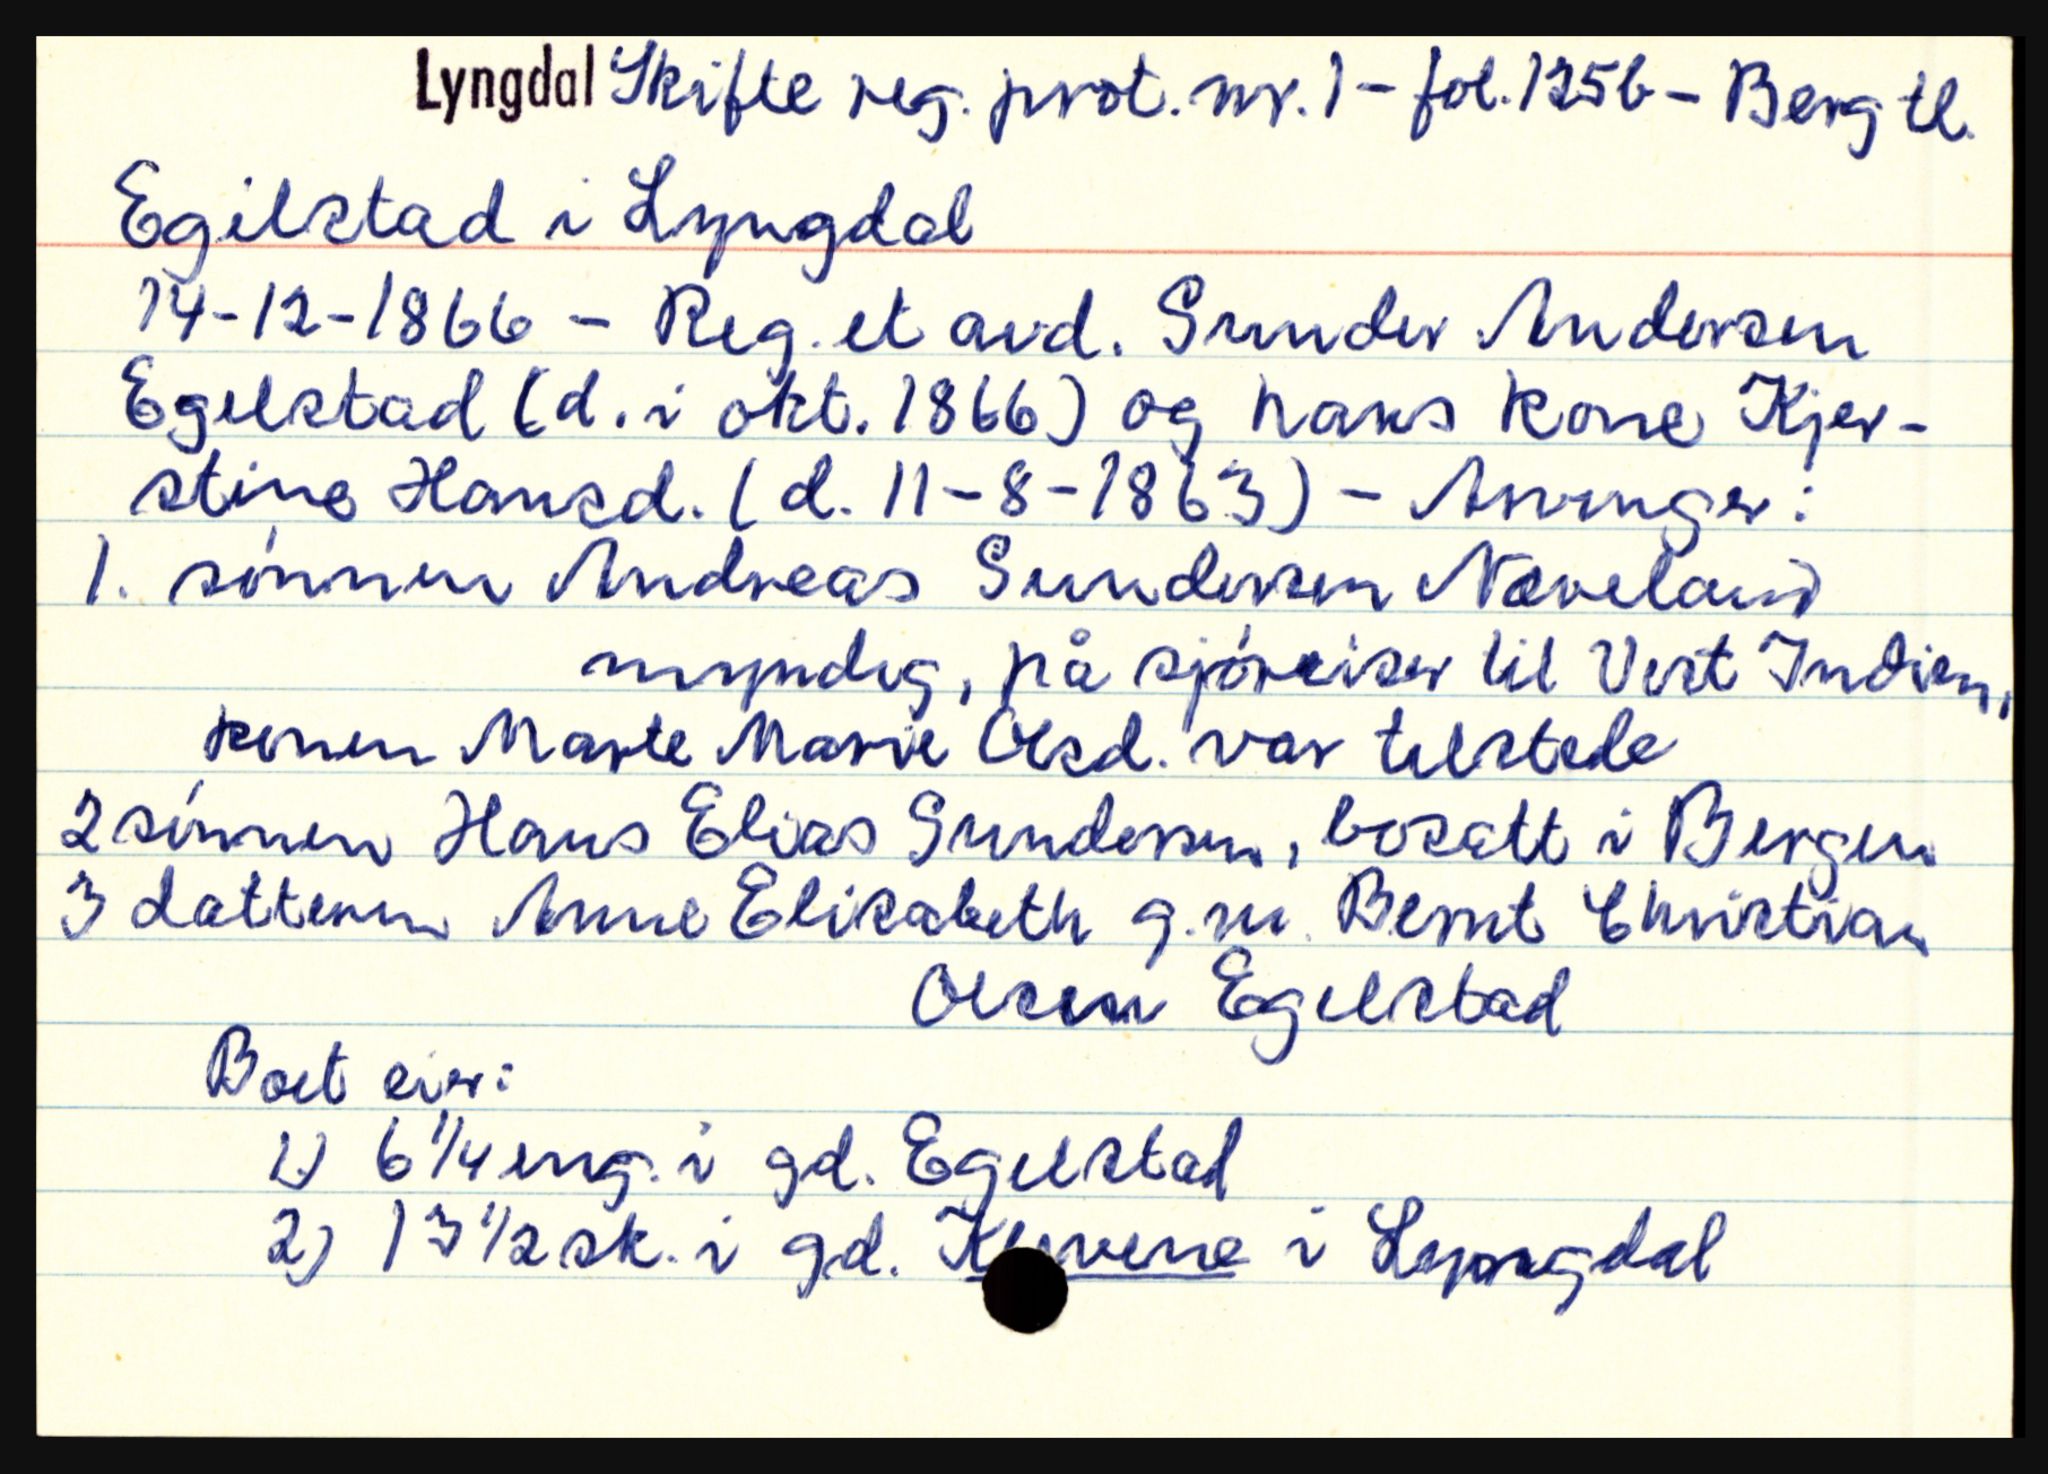 Lyngdal Skifte reg. prot. nr. 1 - fol. 125b - Berg tl.
Egilstad i Lyngdal
14-12-1866 - Reg. et avd. Gunder Andersen
Egelstad (d. i okt. 1866) og hans kone Kjer-
stine Hansd. (d. 11-8-1863) - Arvinger:
1. sønnen Andreas Gundersen Næveland
myndig, på sjøreiser til Vest Indien,
konen Marte Marie Olsd. var tilstede
2 sønnen Hans Elias Gundersen, bosatt i Bergen
3 datteren Anne Elisabeth g.m. Bernt Christian
Olsen Egelstad
Boet eier:
1) 6 1/4 eng. i gd. Egelstad
2) 13 1/2 sk. i gd. i Lyngdal